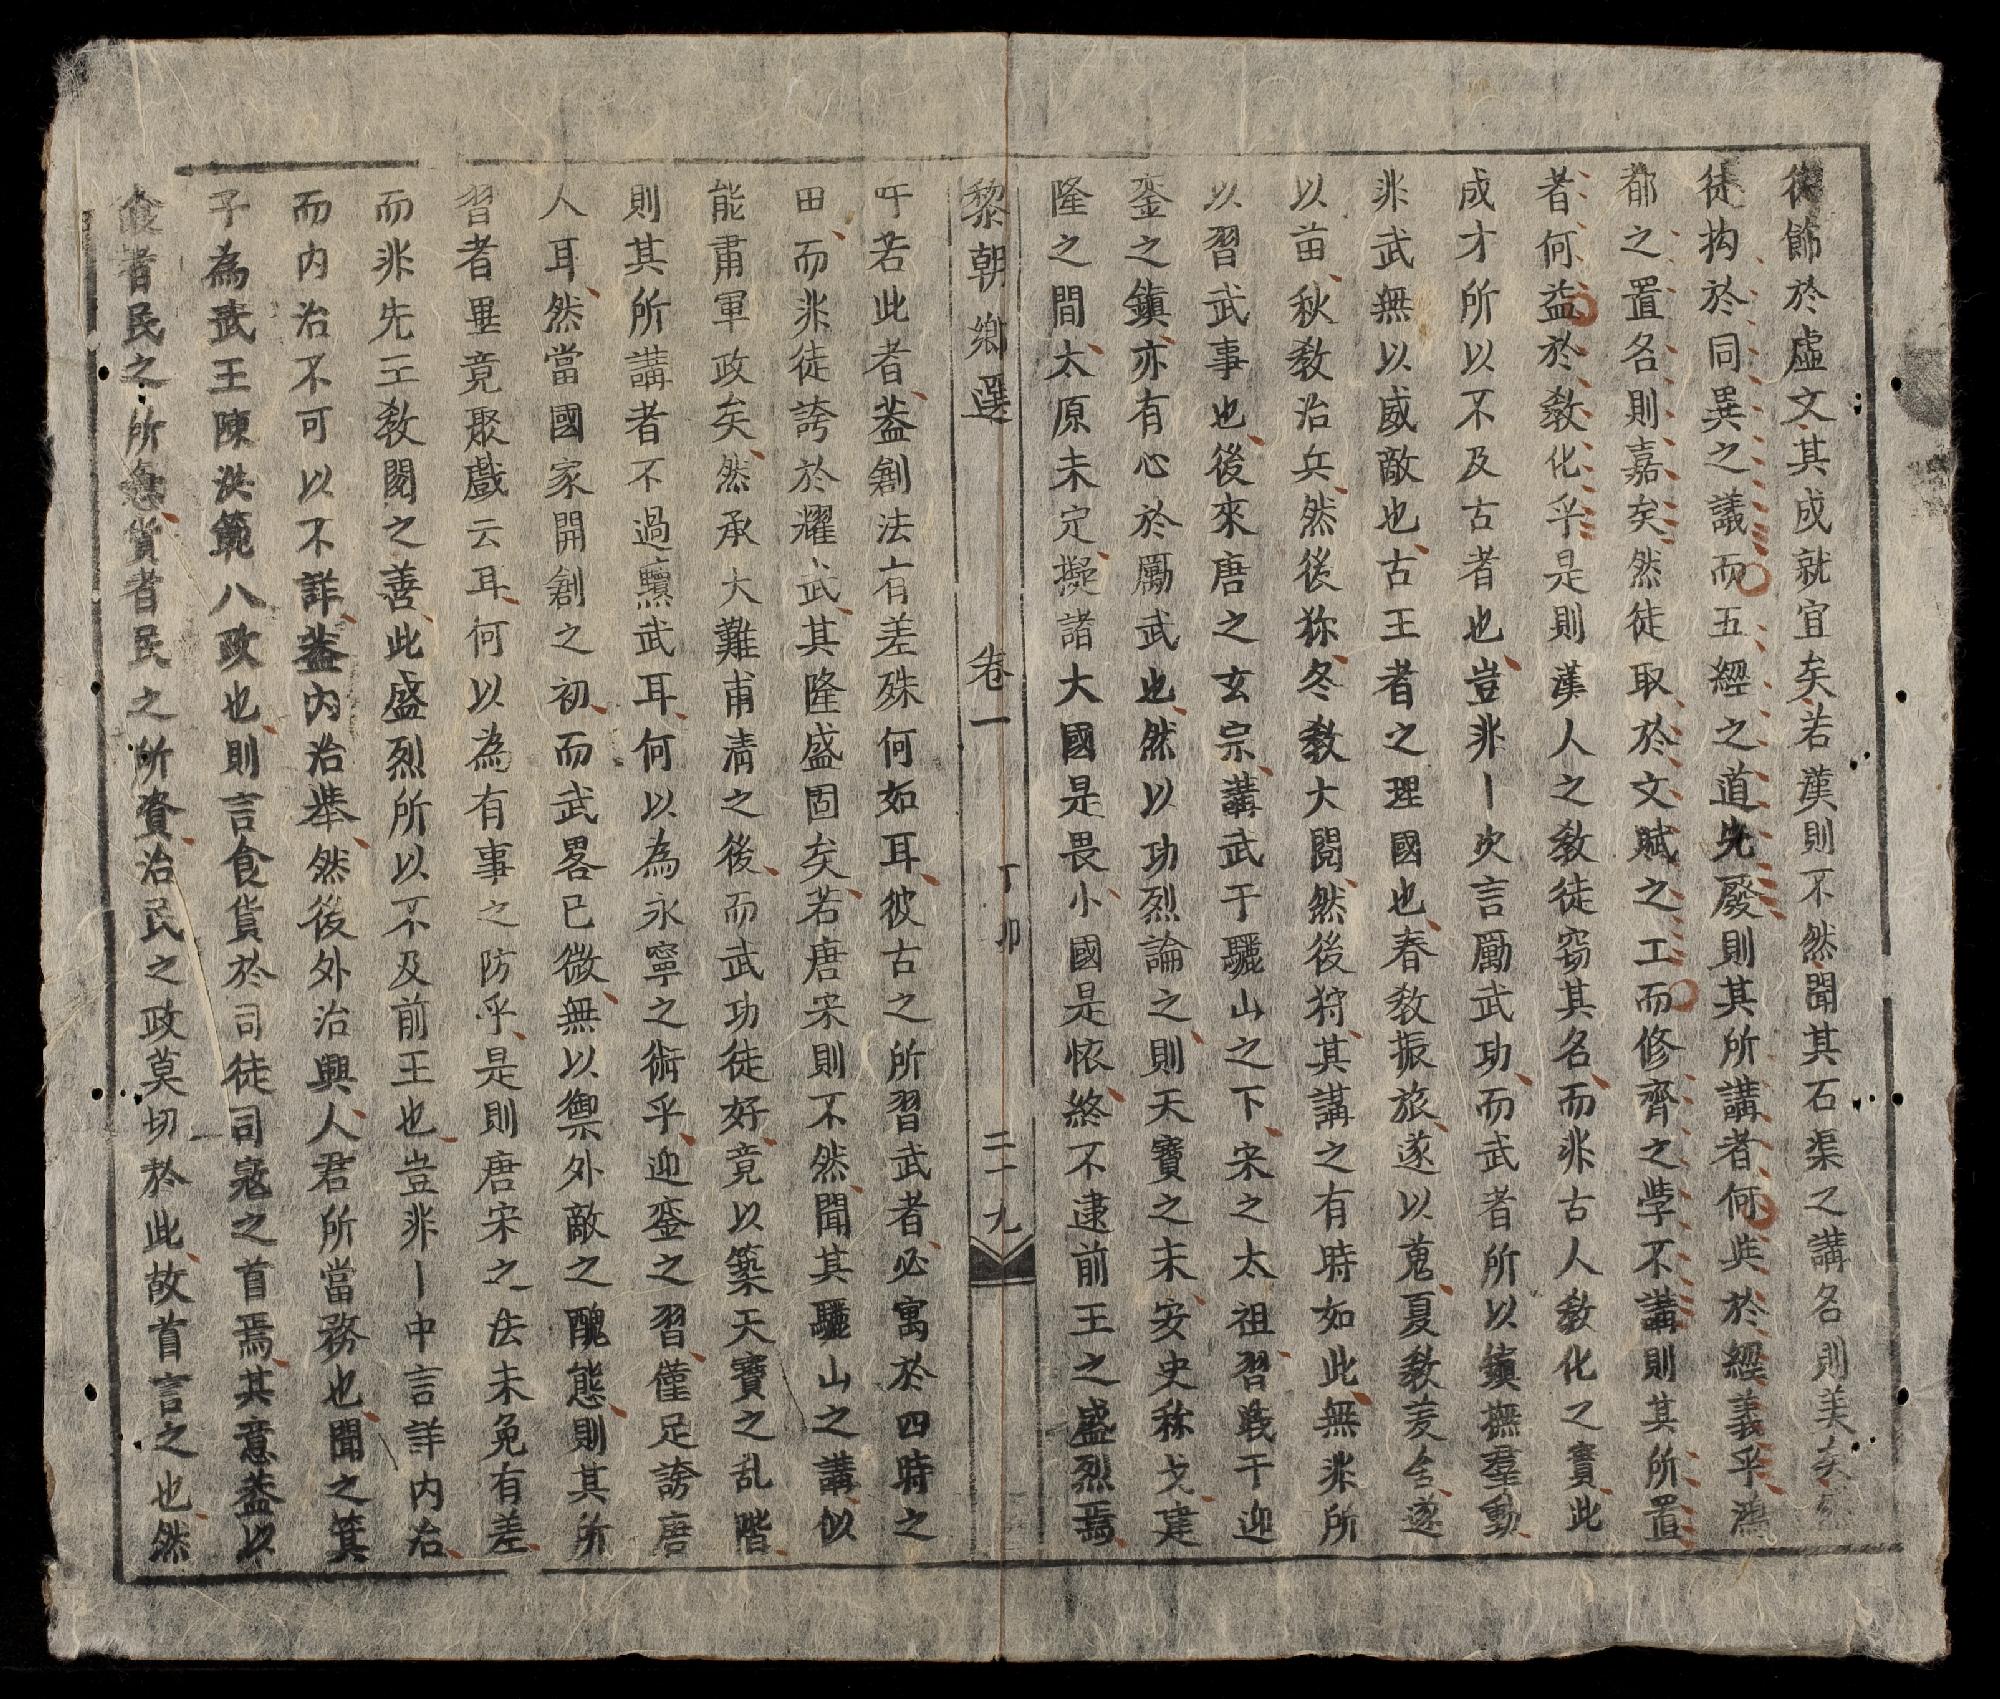 徒飾於虛文其成就宜矣若漢則不然聞其石渠之講名則美矣然
徒拘於同異之議而五經之道先廢則其所講者何哉於經義乎鴻
都之置名則嘉矣然徒取於文賦之工而修齊之學不講則其所置
者何益於教化乎是則漢人之教徒窃其名而非古人教化之實此
成才所以不及古者也豈非丨次言厲武功而武者所以鎮撫羣動
非武無以威敵也古王者之理國也春教振旅遂以蒐夏教茇舍遂
以苗秋教治兵然後狝冬教大閱然後狩其講之有時如此無非所
以習武事也後來唐之玄宗講武于驪山之下宋之太祖習戰于迎
鑾之鎮亦有心於厲武也然以功烈論之則天寶之末安史称戈建
隆之間太原未定擬諸大國是畏小國是懷終不逮前王之盛烈焉
黎朝鄉選 卷一 丁卯 二十九
吁若此者葢創法有差殊何如耳彼古之所習武者必寓於四時之
田而非徒誇於耀武其隆盛固矣若唐宋則不然聞其驪山之講似
能肅軍政矣然承大難甫清之後而武功徒好竟以築天寶之乱階
則其所講者不過黷武耳何以為永寧之術乎迎鑾之習僅足誇唐
人耳然當國家開創之初而武畧已微無以禦外敵之醜態則其所
習者畢竟聚戲云耳何以為有事之防乎是則唐宋之法未免有差
而非先王教閱之善此盛烈所以不及前王也豈非丨中言詳内治
而内治不可以不詳葢内治举然後外治興人君所當務也聞之箕
子為武王陳洪範八政也則言食貨於司徒司寇之首焉其意葢以
食者民之所急貨者民之所資治民之政莫切於此故首言之也然